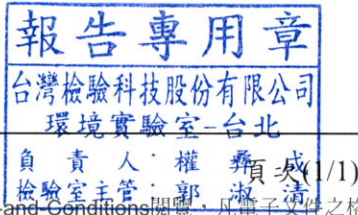 報告專用章
台灣檢驗科技股份有限公司
環境實驗室-台北
負責人：權彝成
頁次(1/1)
檢驗室主管：郭淑清
-and-Conditions閱覽，凡電子文件之格